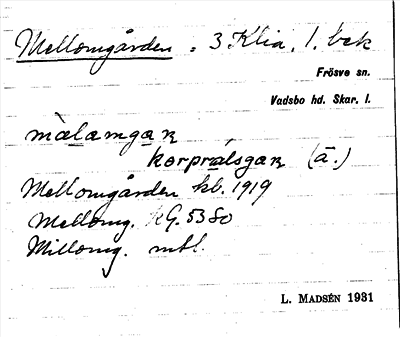 Mellomgården : 3 Klia, 1. bek
Frösve sn.
Vadsbo hd. Skar. l.
màlamgaʀ
korprálsgaʀ (ä.)
Mellomgården kb. 1919
Mellomg. kG. 53 80
Millomg. mtl.
L. Madsén 1931